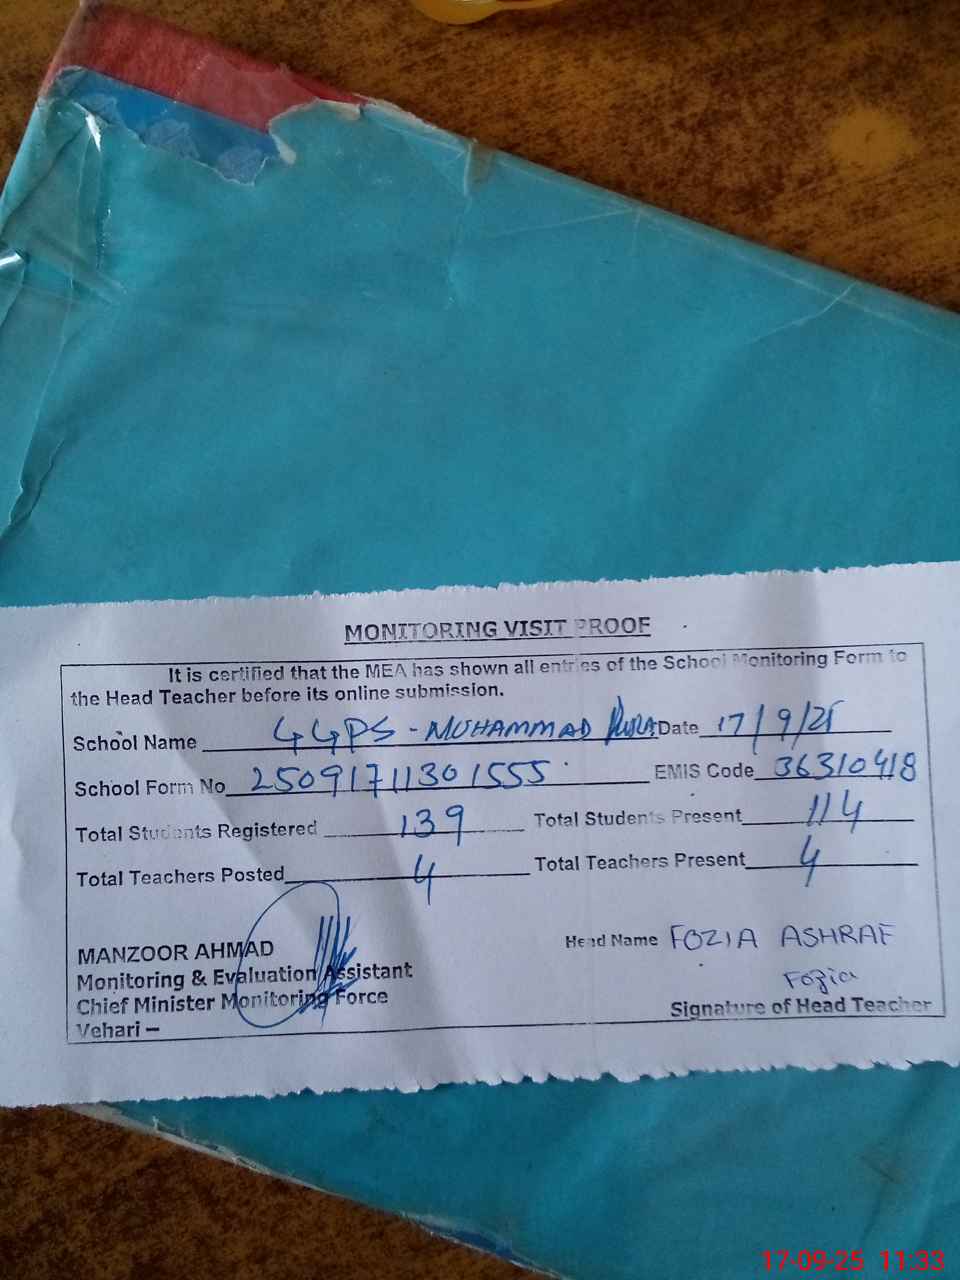 MONITORING VISIT PROOF
It is certified that the MEA has shown all entries of the School Monitoring Form to
the Head Teacher before its online submission.
School Name GGPS - MUHAMMAD PURA Date 17/9/25
School Form No 25091711301555 EMIS Code 36310418
Total Students Registered 139 Total Students Present 114
Total Teachers Posted 4 Total Teachers Present 4
MANZOOR AHMAD Head Name FOZIA ASHRAF
Monitoring & Evaluation Assistant Fozia
Chief Minister Monitoring Force Signature of Head Teacher
Vehari –
17-09-25 11:33